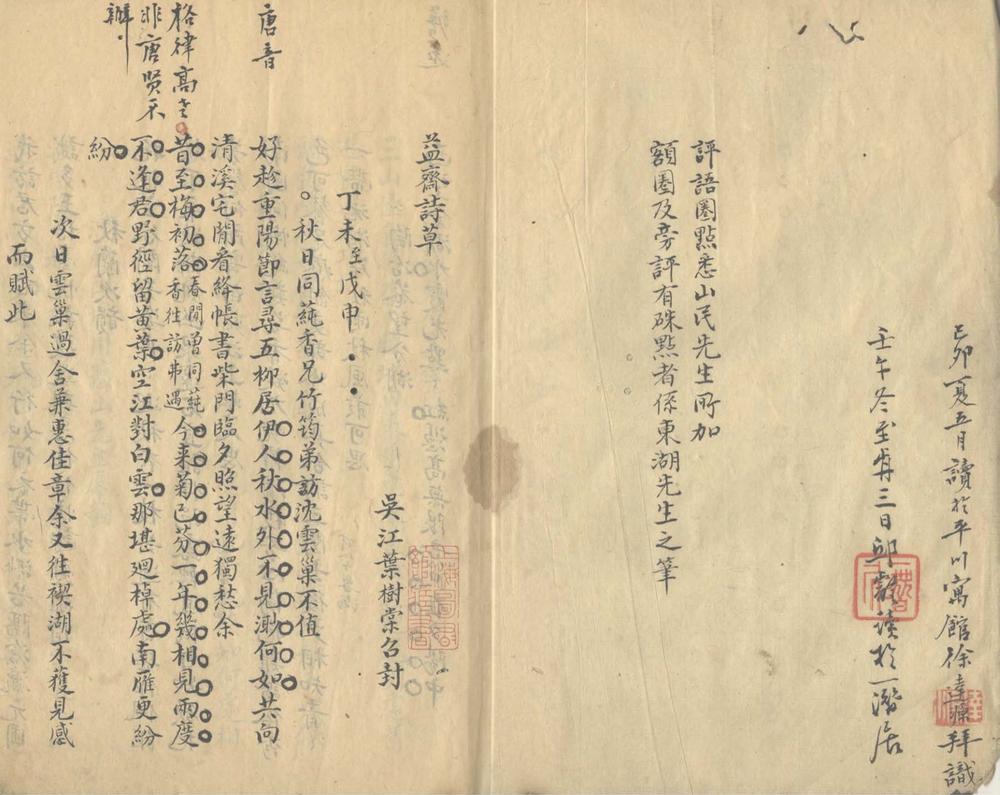 己卯夏五月讀於平川寓館徐達源拜識
壬午冬至前三日邱讀於一潛居
評語圈點悉山民先生所加
額圈及旁評有硃點者係東湖先生之筆
益齋詩草
吳江葉樹棠召封
丁未至戊申
秋日同蒓香兄竹筠弟訪沈雲巢不值
唐音
好趁重陽節言尋五柳居伊人秋水外不見渺何如共向
清溪宅閒看絳帳書柴門臨夕照望遠獨愁余
格律高老
非唐賢不
辦
昔至梅初落春間曾同蒓香往訪弗遇今来菊已芬一年幾相見兩度
不逢君野徑留黄葉空江對白雲那堪迴棹處南雁更紛
紛
次日雲巢過舍兼惠佳章余又往禊湖不獲見感
而賦此